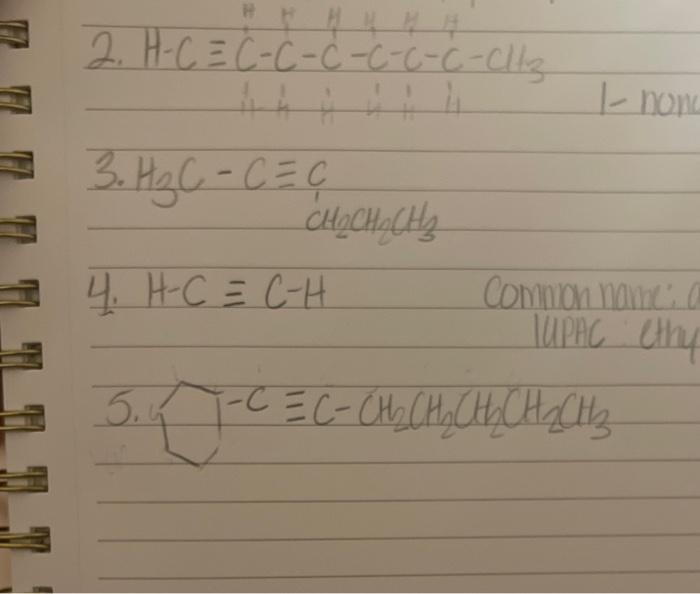 H H H H H H
2. H-C≡C-C-C-C-C-C-CH3
H H H H H H
1-non
3. H3C-C≡C
CH2CH2CH3
4. H-C≡C-H Common name: a
IUPAC: ethy
5. -C≡C-CH2CH2CH2CH2CH3